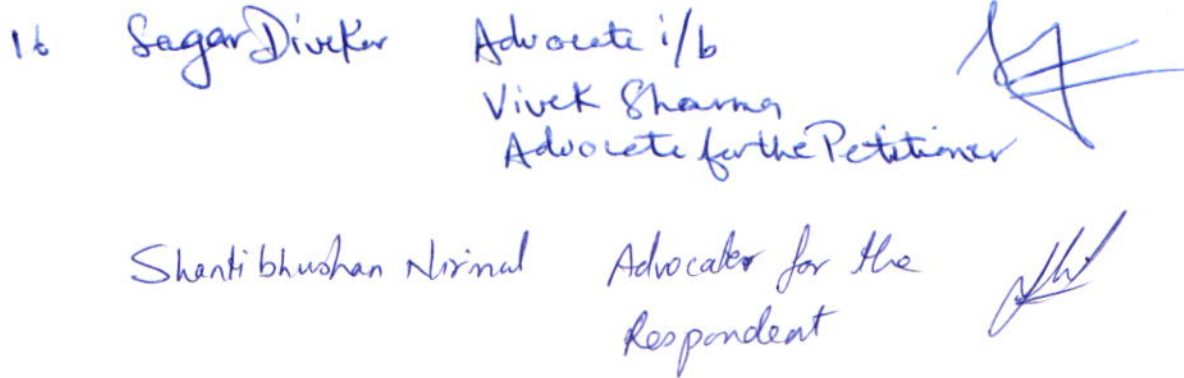 16 Sagar Divekar Advocate i/b
Vivek Sharma
Advocate for the Petitioner
Shantibhushan Nirmal Advocate for the
Respondent